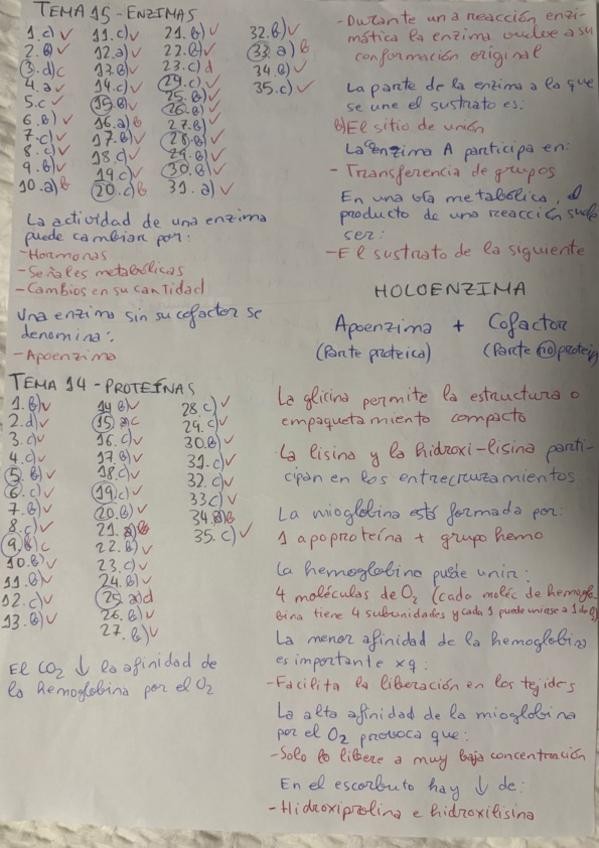 TEMA 15 - ENZIMAS
1. c) ✓
2. b) ✓
3. d) c
4. a ✓
5. c ✓
6. b) ✓
7. c) ✓
8. c) ✓
9. b) ✓
10. a) b
11. c) ✓
12. a) ✓
13. b) ✓
14. c) ✓
15. b) ✓
16. a) b
17. b) ✓
18. c) ✓
19. c) ✓
20. c) b
21. b) ✓
22. b) ✓
23. c) d
24. c) ✓
25. b) ✓
26. b) ✓
27. b) ✓
28. b) ✓
29. b) ✓
30. b) ✓
31. a) ✓
32. b) ✓
33. a) b
34. b) ✓
35. c) ✓
La actividad de una enzima
puede cambiar por:
- Hormonas
- Señales metabólicas
- Cambios en su cantidad
Una enzima sin su cofactor se
denomina:
- Apoenzima
- Durante una reacción enzi-
mática la enzima vuelve a su
conformación original
La parte de la enzima a la que
se une el sustrato es:
b) El sitio de unión
La enzima A participa en:
- Transferencia de grupos
En una vía metabólica, el
producto de una reacción suele
ser:
- El sustrato de la siguiente
HOLOENZIMA
Apoenzima + Cofactor
(Parte proteica) (Parte no proteic
TEMA 14 - PROTEÍNAS
1. b) ✓
2. d) ✓
3. c) ✓
4. c) ✓
5. b) ✓
6. c) ✓
7. b) ✓
8. c) ✓
9. b) c
10. b) ✓
11. b) ✓
12. c) ✓
13. b) ✓
14 b) ✓
15. a) c
16. c) ✓
17. b) ✓
18. c) ✓
19. c) ✓
20. b) ✓
21. a) b
22. b) ✓
23. c) ✓
24. b) ✓
25. a) d
26. b) ✓
27. b) ✓
28. c) ✓
29. c) ✓
30. b) ✓
31. c) ✓
32. c) ✓
33 c) ✓
34. b
35. c) ✓
El CO2 ↓ la afinidad de
la hemoglobina por el O2
La glicina permite la estructura o
empaquetamiento compacto
La lisina y la hidroxi-lisina parti-
cipan en los entrecruzamientos
La mioglobina está formada por:
1 apoproteína + grupo hemo
La hemoglobina puede unir:
4 moléculas de O2 (cada moléc de hemoglo-
bina tiene 4 subunidades y cada 1 puede unirse a 1 de O2)
La menor afinidad de la hemoglobina
es importante xq:
- Facilita la liberación en los tejidos
La alta afinidad de la mioglobina
por el O2 provoca que:
- Solo lo libere a muy baja concentración
En el escorbuto hay ↓ de:
- Hidroxiprolina e hidroxilisina